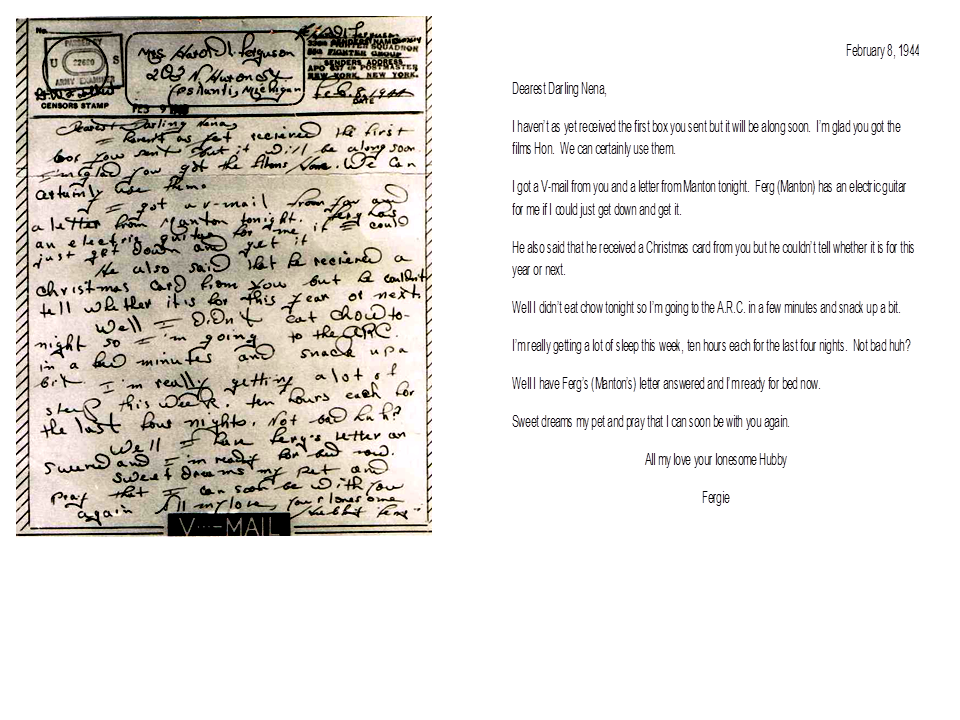 No.
PASSED BY
U S
22620
ARMY EXAMINER
CENSORS STAMP
Mrs Harold L. Ferguson
203 N. Huron St
Ypsilanti, Michigan
Harold L Ferguson
SQUADRON
FIGHTER GROUP
SENDERS ADDRESS
APO 637 c/o POSTMASTER
NEW YORK, NEW YORK.
Feb. 8, 1944
DATE
FEB 9
Dearest Darling Nena,
I havent as yet recieved the first
box you sent but it will be along soon
I'm glad you got the films Hon. We can
certainly use them.
I got a v-mail from you and
a letter from Manton tonight. Ferg has
an electric guitar for me if I could
just get down and get it
He also said that he recieved a
christmas card from you but he couldn't
tell whether it is for this year or next.
Well I Didn't eat chow to-
night so I'm going to the ARC.
in a few minutes and snack up a
bit. I'm really getting a lot of
sleep this week. ten hours each for
the last four nights. Not bad huh?
Well I have Ferg's letter an
swered and I'm ready for bed now.
Sweet dreams my pet and
pray that I can soon be with you
again All my love, your lonesome
Hubby Ferg
V···—MAIL
February 8, 1944
Dearest Darling Nena,
I haven't as yet received the first box you sent but it will be along soon. I'm glad you got the
films Hon. We can certainly use them.
I got a V-mail from you and a letter from Manton tonight. Ferg (Manton) has an electric guitar
for me if I could just get down and get it.
He also said that he received a Christmas card from you but he couldn't tell whether it is for this
year or next.
Well I didn't eat chow tonight so I'm going to the A.R.C. in a few minutes and snack up a bit.
I'm really getting a lot of sleep this week, ten hours each for the last four nights. Not bad huh?
Well I have Ferg's (Manton's) letter answered and I'm ready for bed now.
Sweet dreams my pet and pray that I can soon be with you again.
All my love your lonesome Hubby
Fergie